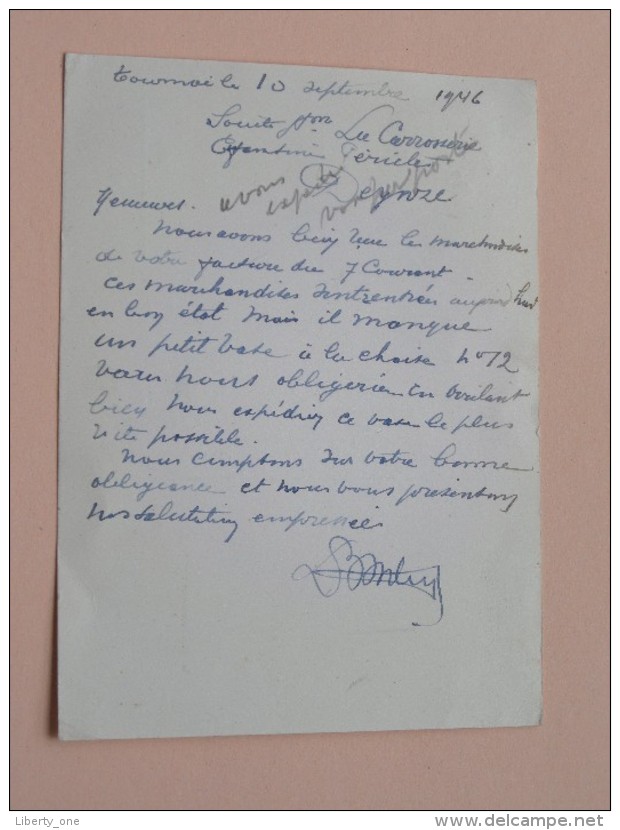 Tournai le 10 septembre 1946
Société La Carrosserie
Deynze
avons
expédié
Messieurs.
Nous avons bien reçu les marchandises
de votre facture du 7 Courant.
Ces marchandises sont rentrées aujourd'hui
en bon état mais il manque
un petit vase à la chaise No 12
vous nous obligerien en voulant
bien nous expédier ce vase le plus
vite possible.
Nous comptons sur votre bonne
obligeance et nous vous présentons
nos salutations empressées
Liberty_one
http://www.delcampe.net